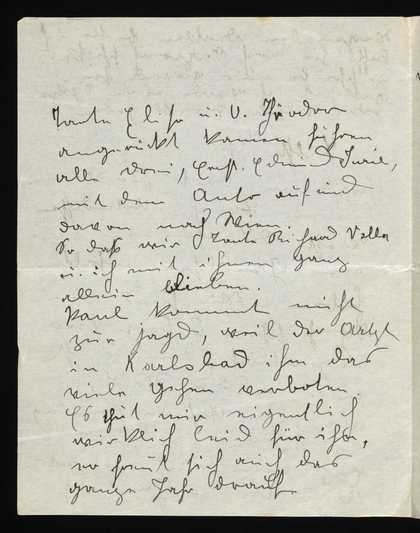 Tante Elise u. O. Theodor
angerückt kamen fuhren
alle drei, Ernst, Edmund
mit dem Auto auf und
davon nach Wien.
So daß wir Tante Richard Vetta
u. ich mit ihnen ganz
allein blieben.
Paul kommt nicht
zur Jagd, weil der Artzt
in Karlsbad ihm das
viele gehen verboten
Es thut mir eigentlich
wirklich leid für ihn,
er freut sich auch das
ganze Jahr drauf.